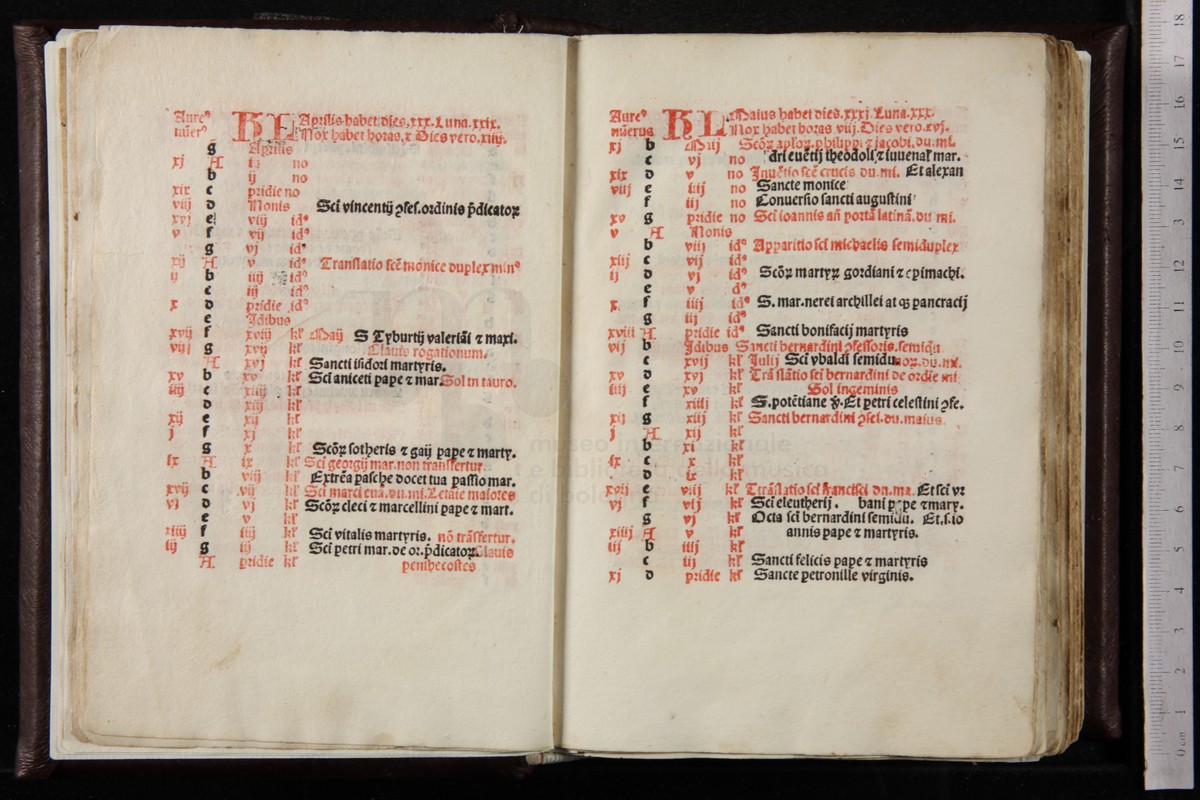 Aureꝰ KL Aprilis habet dies.xxx.Luna.xxix.
nũerꝰ Nox habet horas.x Dies vero.xiiij.
g Aprilis
xj A iij no
b ij no
xix c pridie no
viij d Nonis Scí vincentij ꝯfes.ordinis p̃dicatoꝝ
xvj e viij idꝰ
v f vij idꝰ
g vj idꝰ
xij A v idꝰ Translatio scẽ monice duplex minꝰ
ij b iiij idꝰ
c iij idꝰ
x d pridie idꝰ
e Idibus
xvij f xviij kl̓ Maij S Tyburtij valeriãi ⁊ maxi.
vij g xvij kl̓ Clauis rogationum.
A xvj kl̓ Sancti isidori martyris.
xv b xv kl̓ Scí aniceti pape ⁊ mar. Sol in tauro.
iiij c xiiij kl̓
d xiij kl̓
xij e xij kl̓
j f xj kl̓
g x kl̓ Scõꝝ sotheris ⁊ gaij pape ⁊ marty.
ix A ix kl̓ Scí georgij mar.non transfertur
b viij kl̓ Extrẽa pasche docet tua passio mar.
xvij c vij kl̓ Scí marci euã.du.mi.Letaie maiores
vj d vj kl̓ Scõꝝ cleci ⁊ marcellini pape ⁊ mart.
e v kl̓
xiiij f iiij kl̓ Scí vitalis martyris. nõ trãsfertur.
iij g iij kl̓ Scí petri mar.de or.p̃dicatoꝝ. Clauis
A pridie kl̓ penthecostes
Aureꝰ KL Maius habet dies.xxxj.Luna.xxx.
nũerus Nox habet horas viij.Dies vero.xvj.
xj b Maij Scõꝝ apl̓oꝝ.philippi ⁊ iacobi.du.mi.
c vj no dri euẽtij theodoli ⁊ iuuenal̓ mar.
xix d v no Inuẽtio scẽ crucis du.mi. Et alexan
viij e iiij no Sancte monice
f iij no Conuersio sancti augustini
xv g pridie no Scí ioannis añ portã latinã.du mi.
v A Nonis
b viij idꝰ Apparitio scí michaelis semiduplex
xiij c vij idꝰ
ij d vj idꝰ Scõꝝ martyꝝ gordiani ⁊ epimachi.
e v dꝰ
x f iiij idꝰ S.mar.nerei archillei at qꝫ pancracij
g iij idꝰ
xviij A pridie idꝰ Sancti bonifacij martyris
vij b Idibus Sancti bernardini ꝯfessoris.semidu
c xvij kl̓ Iulij Scí vbaldi semidu
xv d xvj kl̓ Trãslatio scí bernardini de ordie mi
iiij e xv kl̓ Sol in geminis
f xiiij kl̓ S.potẽtiane v̓.Et petri celestini ꝯfe.
xij g xiij kl̓ Sancti bernardini ꝯfes.du.maius
j A xij kl̓
b xi kl̓
ix c x kl̓
d ix kl̓
xvij e viij kl̓ Trãslatio scí francisci du.ma. Et scí vr
vj f vij kl̓ Scí eleutherij. bani pape ⁊ mary.
g vj kl̓ Octa scí bernardini semidu. Et.s.io
xiiij A v kl̓ annis pape ⁊ martyris.
iij b iiij kl̓
c iij kl̓ Sancti felicis pape ⁊ martyris
xj d pridie kl̓ Sancte petronille virginis.
museo internazionale
e biblioteca della musica
di bologna
0 cm 1 2 3 4 5 6 7 8 9 10 11 12 13 14 15 16 17 18